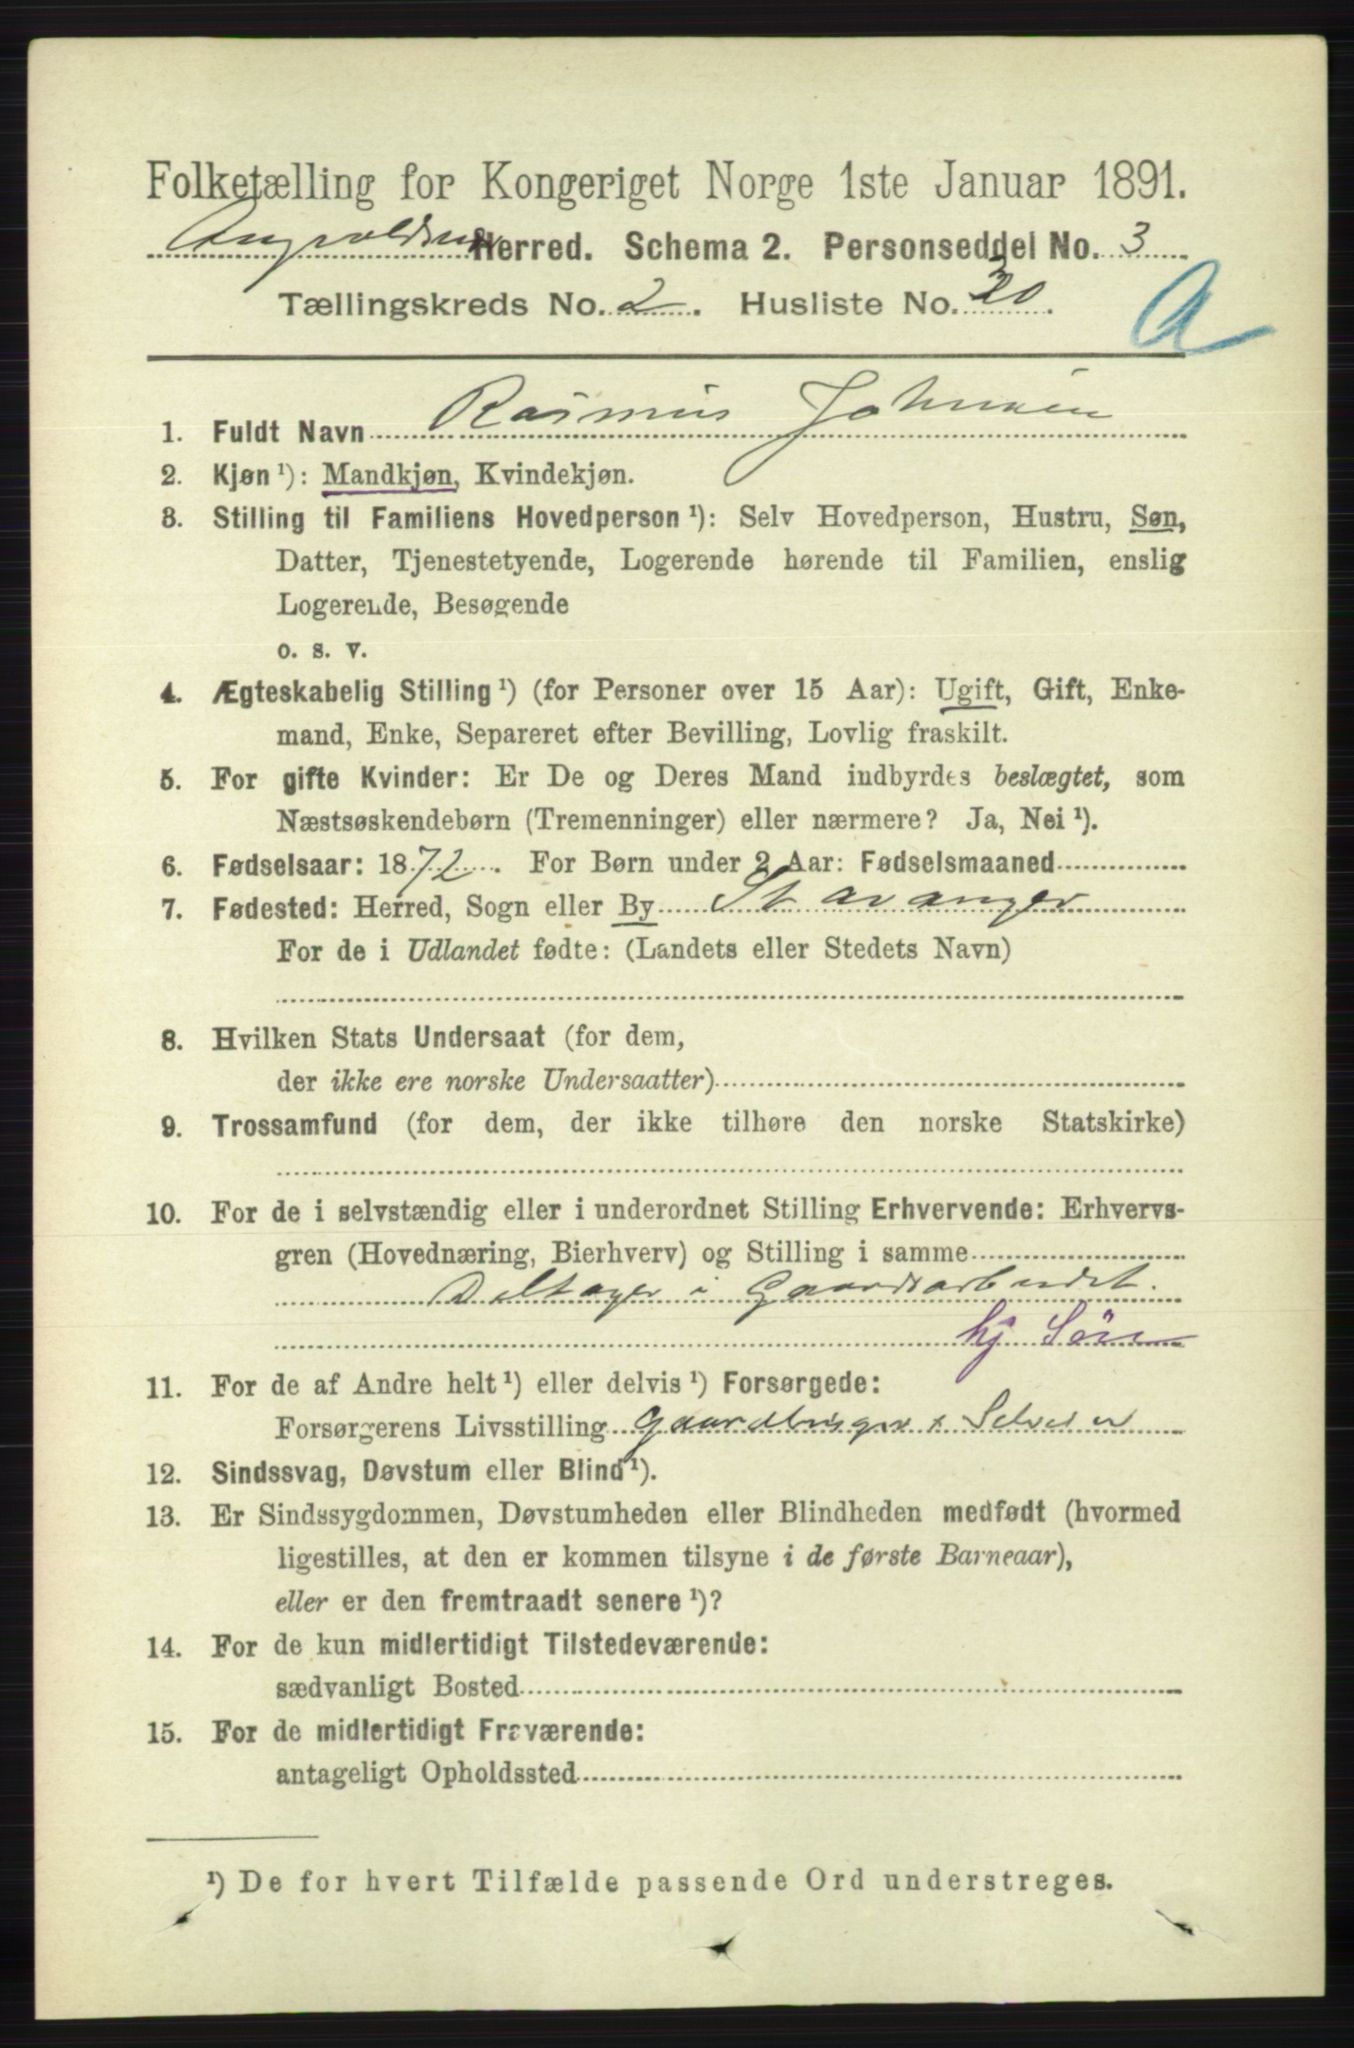 Folketælling for Kongeriget Norge 1ste Januar 1891.
Herred. Schema 2. Personseddel No. 3
Tællingskreds No. 2. Husliste No. 30.
A
1. Fuldt Navn Rasmus Johnsen
2. Kjøn ¹): Mandkjøn, Kvindekjøn.
3. Stilling til Familiens Hovedperson ¹): Selv Hovedperson, Hustru, Søn,
Datter, Tjenestetyende, Logerende hørende til Familien, enslig
Logerende, Besøgende
o. s. v.
4. Ægteskabelig Stilling ¹) (for Personer over 15 Aar): Ugift, Gift, Enke-
mand, Enke, Separeret efter Bevilling, Lovlig fraskilt.
5. For gifte Kvinder: Er De og Deres Mand indbyrdes beslægtet, som
Næstsøskendebørn (Tremenninger) eller nærmere? Ja, Nei ¹).
6. Fødselsaar: 1872. For Børn under 2 Aar: Fødselsmaaned
7. Fødested: Herred, Sogn eller By Stavanger
For de i Udlandet fødte: (Landets eller Stedets Navn)
8. Hvilken Stats Undersaat (for dem,
der ikke ere norske Undersaatter)
9. Trossamfund (for dem, der ikke tilhøre den norske Statskirke)
10. For de i selvstændig eller i underordnet Stilling Erhvervende: Erhvervs-
gren (Hovednæring, Bierhverv) og Stilling i samme
Deltager i Gaardsarbeidet.
hj Søn
11. For de af Andre helt ¹) eller delvis ¹) Forsørgede:
Forsørgerens Livsstilling Gaardbruger x Selveier
12. Sindssvag, Døvstum eller Blind ¹).
13. Er Sindssygdommen, Døvstumheden eller Blindheden medfødt (hvormed
ligestilles, at den er kommen tilsyne i de første Barneaar),
eller er den fremtraadt senere ¹)?
14. For de kun midlertidigt Tilstedeværende:
sædvanligt Bosted
15. For de midlertidigt Fraværende:
antageligt Opholdssted
¹) De for hvert Tilfælde passende Ord understreges.